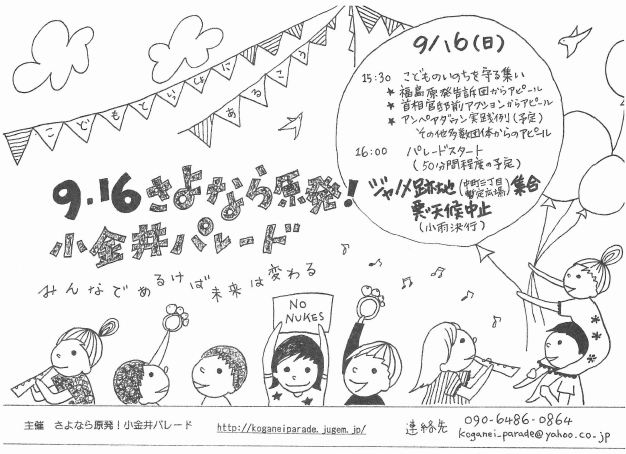 こどもといっしょに
あるこう
9/16(日)
15:30 こどものいのちを守る集い
★福島原発告訴団からアピール
★首相官邸前アクションからアピール
★アンペアダウン実践例(予定)
その他多数団体からのアピール
16:00 パレードスタート
(50分間程度の予定)
ジャノメ跡地(中町三丁目暫定広場)集合
悪天候中止
(小雨決行)
9.16さよなら原発!
小金井パレード
みんなであるけば未来は変わる
NO
NUKES
主催 さよなら原発!小金井パレード http://koganeiparade.jugem.jp/ 連絡先 090-6486-0864
koganei-parade@yahoo.co.jp